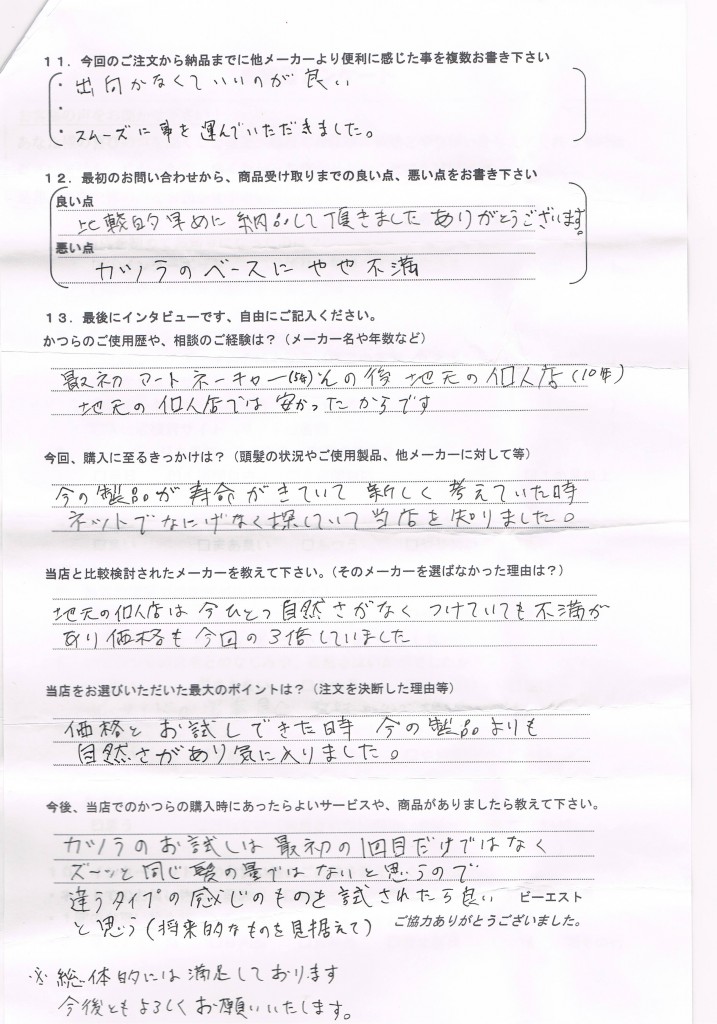 11．今回のご注文から納品までに他メーカーより便利に感じた事を複数お書き下さい
・出向かなくていいのが良い
・
・スムーズに事を運んでいただきました。
12．最初のお問い合わせから、商品受け取りまでの良い点、悪い点をお書き下さい
良い点
比較的早めに納品して頂きました ありがとうございます。
悪い点
カツラのベースに やや不満
13．最後にインタビューです、自由にご記入ください。
かつらのご使用歴や、相談のご経験は？（メーカー名や年数など）
最初 アートネーチャー(5年)さんの後 地元の個人店(10年)
地元の個人店では安かったからです
今回、購入に至るきっかけは？（頭髪の状況やご使用製品、他メーカーに対して等）
今の製品が寿命がきていて 新しく考えていた時
ネットでなにげなく探していて当店を知りました。
当店と比較検討されたメーカーを教えて下さい。（そのメーカーを選ばなかった理由は？）
地元の個人店は今ひとつ自然さがなく つけていても不満が
あり価格も今回の3倍していました
当店をお選びいただいた最大のポイントは？（注文を決断した理由等）
価格と お試しできた時 今の製品よりも
自然さがあり気に入りました。
今後、当店でのかつらの購入時にあったらよいサービスや、商品がありましたら教えて下さい。
カツラのお試しは最初の1回目だけではなく
ズーンと同じ髪の量ではないと思うので
違うタイプの感じのものを試されたら良い
と思う(将来的なものを見据えて)
ビーエスト
ご協力ありがとうございました。
※総体的には満足しております
今後ともよろしくお願いいたします。